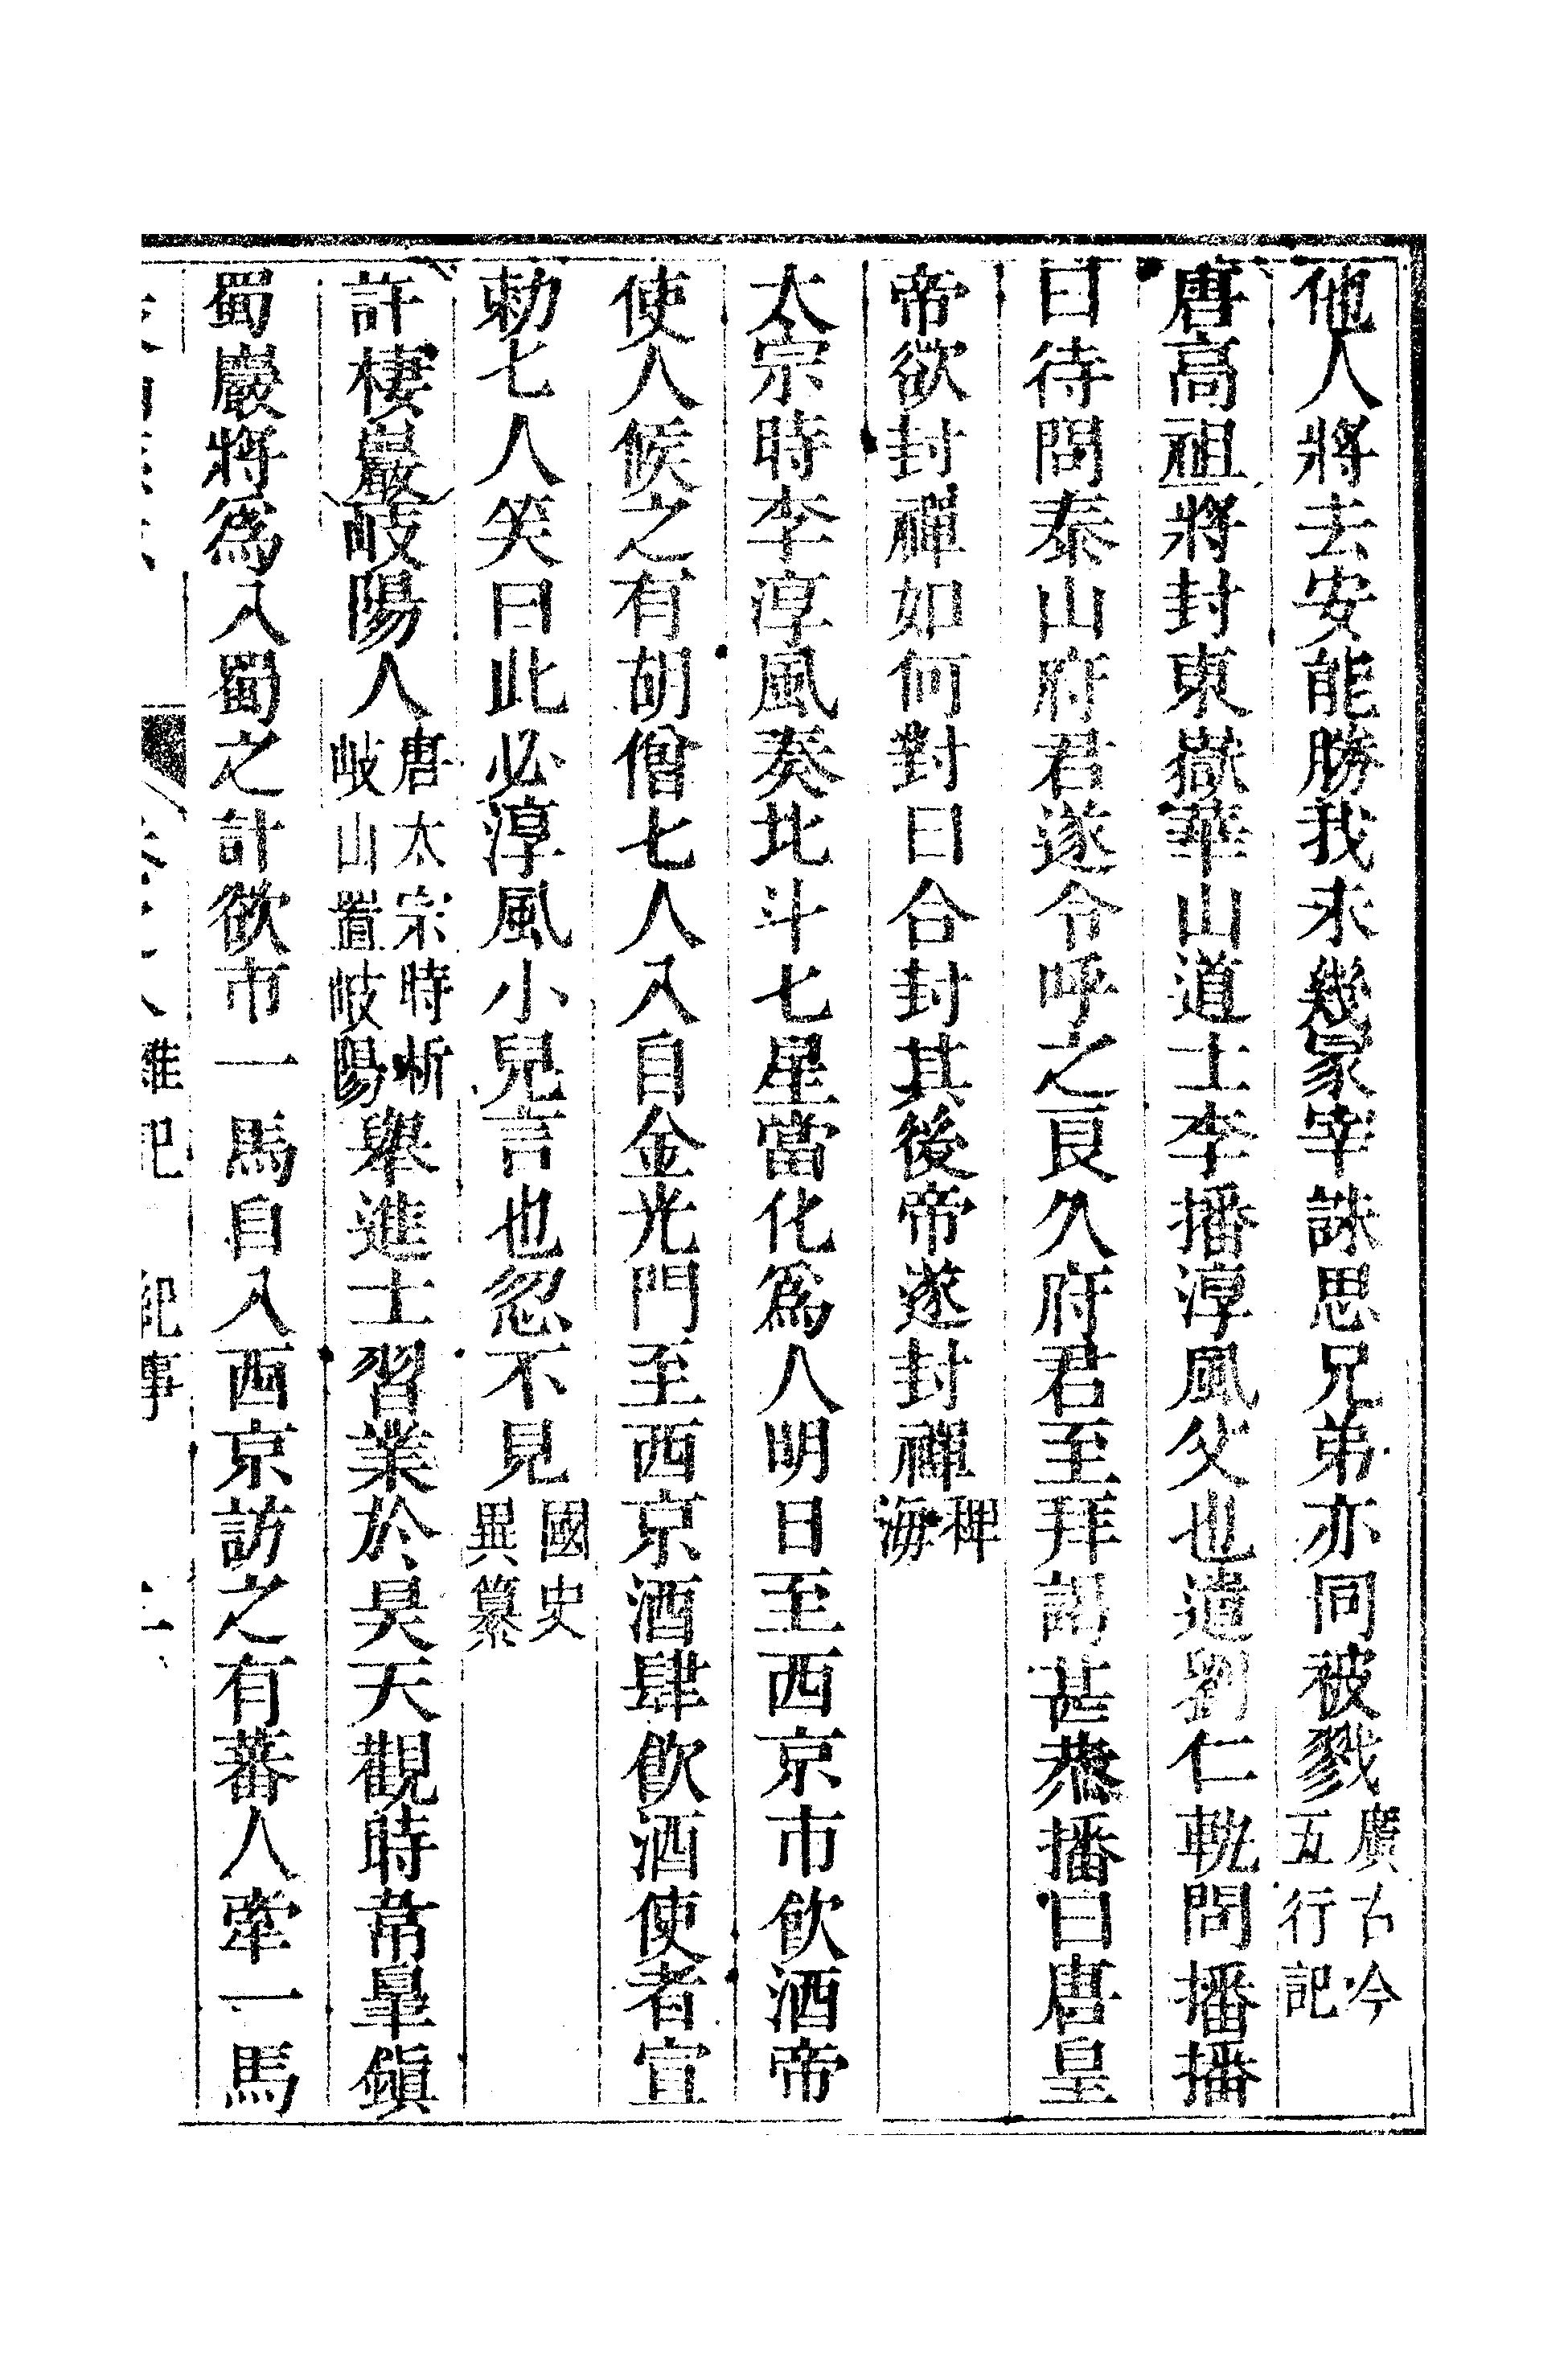 他人將去安能勝我未幾冢宰誅思兄弟亦同被戮廣古今五行記
唐高祖將封東嶽華山道士李播淳風父也遣劉仁軌問播播
曰待問泰山府君遂令呼之良久府君至拜謁甚恭播曰唐皇
帝欲封禪如何對曰合封其後帝遂封禪稗海
太宗時李淳風奏北斗七星當化爲人明日至西京市飲酒帝
使人候之有胡僧七人入自金光門至西京酒肆飲酒使者宣
勅七人笑曰此必淳風小兒言也忽不見國史異纂
許棲巖岐陽人唐太宗時析岐山置岐陽舉進士習業於昊天觀時韋臯鎭
蜀巖將爲入蜀之計欲市一馬自入西京訪之有蕃人牽一馬
雜記 紀事